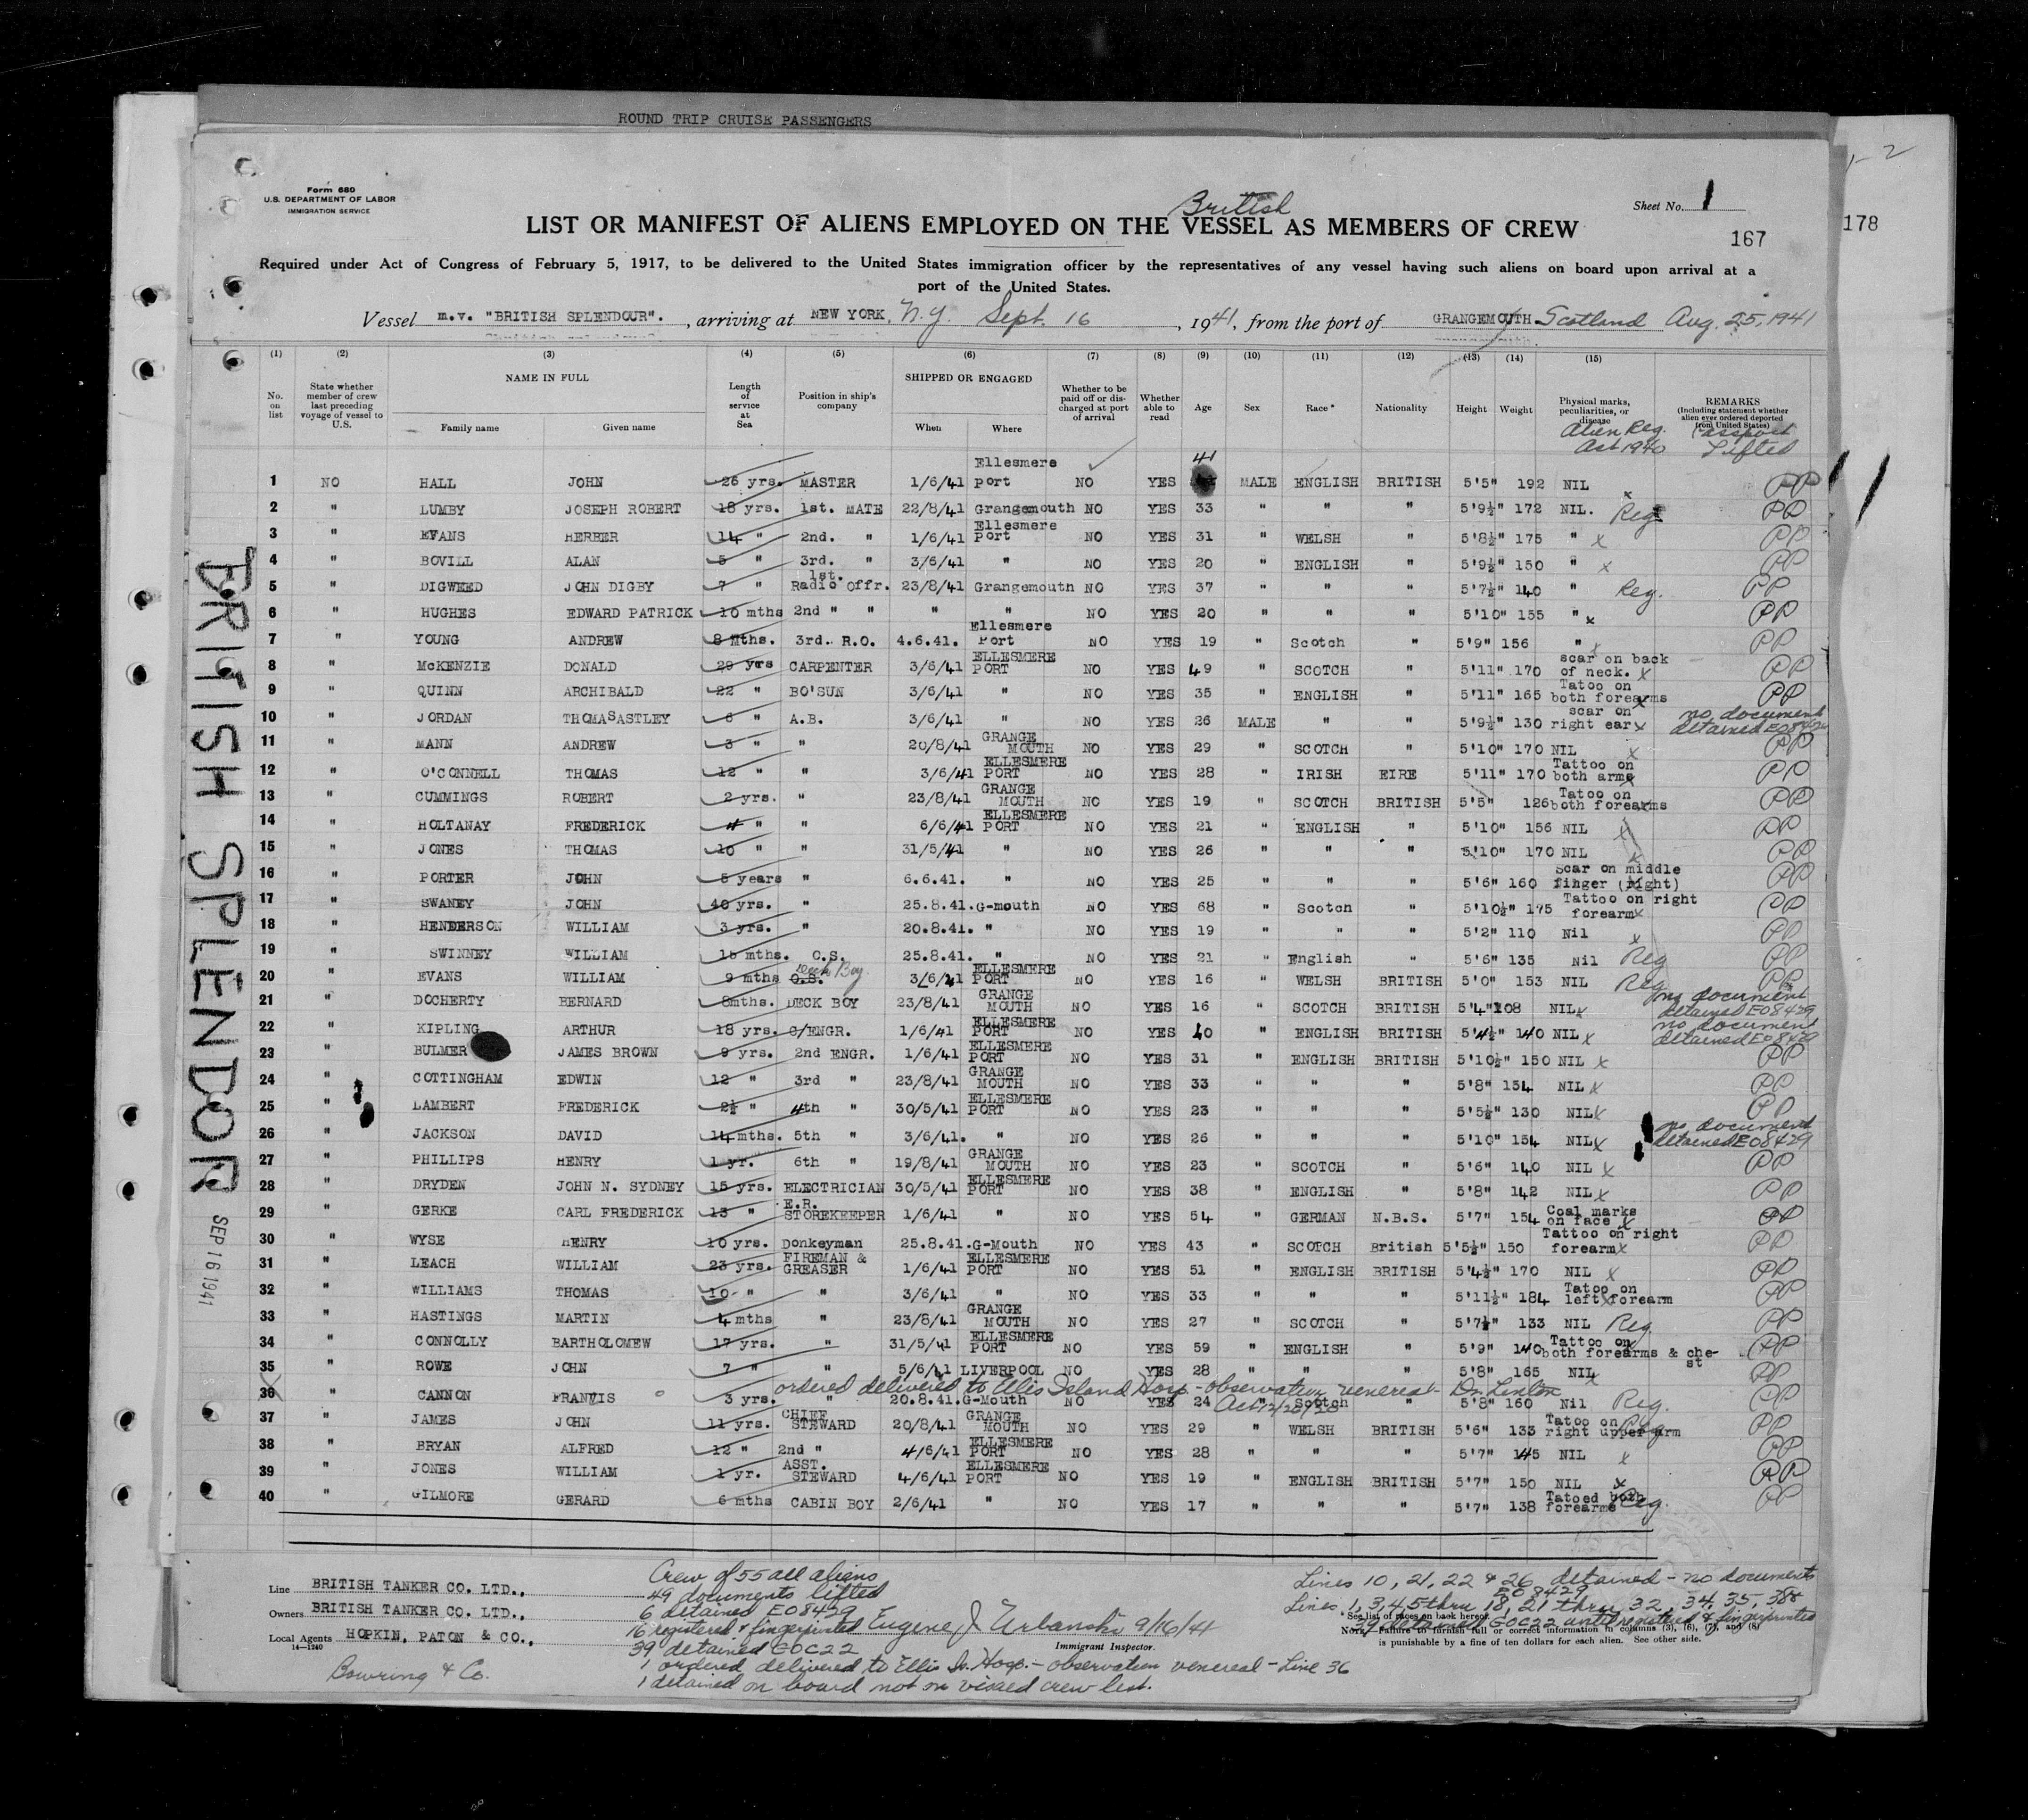 ROUND TRIP CRUISE PASSENGERS
1-2
Form 680
U.S. DEPARTMENT OF LABOR
IMMIGRATION SERVICE
Sheet No. 1
British
LIST OR MANIFEST OF ALIENS EMPLOYED ON THE VESSEL AS MEMBERS OF CREW
167
178
Required under Act of Congress of February 5, 1917, to be delivered to the United States immigration officer by the representatives of any vessel having such aliens on board upon arrival at a
port of the United States.
Vessel m.v. "BRITISH SPLENDOUR". , arriving at NEW YORK, N.Y. Sept. 16 , 1941, from the port of GRANGEMOUTH Scotland Aug. 25, 1941
(1) (2) (3) (4) (5) (6) (7) (8) (9) (10) (11) (12) (13) (14) (15)
No. on list State whether member of crew last preceding voyage of vessel to U.S. NAME IN FULL Family name Given name Length of service at Sea Position in ship's company SHIPPED OR ENGAGED When Where Whether to be paid off or discharged at port of arrival Whether able to read Age Sex Race * Nationality Height Weight Physical marks, peculiarities, or disease REMARKS (Including statement whether alien ever ordered deported from United States)
Alien Reg. Act 1940 Passport Lifted
1 NO HALL JOHN 26 yrs. MASTER 1/6/41 Ellesmere port NO YES 41 MALE ENGLISH BRITISH 5'5" 192 NIL PP
2 " LUMBY JOSEPH ROBERT 18 yrs. 1st. MATE 22/8/41 Grangemouth NO YES 33 " " " 5'9½" 172 NIL. Reg PP
3 " EVANS HERBER 14 " 2nd. " 1/6/41 Ellesmere Port NO YES 31 " WELSH " 5'8½" 175 " x PP
4 " BOVILL ALAN 5 " 3rd. " 3/6/41 " NO YES 20 " ENGLISH " 5'9½" 150 " x PP
5 " DIGWEED JOHN DIGBY 7 " 1st. Radio Offr. 23/8/41 Grangemouth NO YES 37 " " " 5'7½" 140 " Reg. PP
6 " HUGHES EDWARD PATRICK 10 mths 2nd " " " " NO YES 20 " " " 5'10" 155 " x PP
7 " YOUNG ANDREW 8 Mths. 3rd. R.O. 4.6.41. Ellesmere Port NO YES 19 " Scotch " 5'9" 156 " x PP
8 " McKENZIE DONALD 29 yrs CARPENTER 3/6/41 ELLESMERE PORT NO YES 49 " SCOTCH " 5'11" 170 scar on back of neck. x PP
9 " QUINN ARCHIBALD 22 " BO'SUN 3/6/41 " NO YES 35 " ENGLISH " 5'11" 165 Tatoo on both forearms x PP
10 " JORDAN THOMAS ASTLEY 6 " A.B. 3/6/41 " NO YES 26 MALE " " 5'9½" 130 scar on right ear x no document detained EO8429
11 " MANN ANDREW 3 " " 20/8/41 GRANGE MOUTH NO YES 29 " SCOTCH " 5'10" 170 NIL x PP
12 " O'CONNELL THOMAS 12 " " 3/6/41 ELLESMERE PORT NO YES 28 " IRISH EIRE 5'11" 170 Tattoo on both arms x PP
13 " CUMMINGS ROBERT 2 yrs. " 23/8/41 GRANGE MOUTH NO YES 19 " SCOTCH BRITISH 5'5" 126 Tatoo on both forearms PP
14 " HOLTANAY FREDERICK 4 " " 6/6/41 ELLESMERE PORT NO YES 21 " ENGLISH " 5'10" 156 NIL x PP
15 " JONES THOMAS 10 " " 31/5/41 " NO YES 26 " " " 5'10" 170 NIL x PP
16 " PORTER JOHN 5 years " 6.6.41. " NO YES 25 " " " 5'6" 160 Scar on middle finger (right) PP
17 " SWANEY JOHN 40 yrs. " 25.8.41. G-mouth NO YES 68 " Scotch " 5'10½" 175 Tattoo on right forearm x PP
18 " HENDERSON WILLIAM 3 yrs. " 20.8.41. " NO YES 19 " " " 5'2" 110 Nil x PP
19 " SWINNEY WILLIAM 15 mths. O.S. 25.8.41. " NO YES 21 " English " 5'6" 135 Nil Reg PP
20 " EVANS WILLIAM 9 mths O.S. Deck Boy 3/6/41 ELLESMERE PORT NO YES 16 " WELSH BRITISH 5'0" 153 NIL Reg PP
21 " DOCHERTY BERNARD 8mths. DECK BOY 23/8/41 GRANGE MOUTH NO YES 16 " SCOTCH BRITISH 5'4" 108 NIL x no document detained EO8429
22 " KIPLING ARTHUR 18 yrs. C/ENGR. 1/6/41 ELLESMERE PORT NO YES 40 " ENGLISH BRITISH 5'4½" 140 NIL x no document detained EO8429
23 " BULMER JAMES BROWN 9 yrs. 2nd ENGR. 1/6/41 ELLESMERE PORT NO YES 31 " ENGLISH BRITISH 5'10½" 150 NIL x PP
24 " COTTINGHAM EDWIN 12 " 3rd " 23/8/41 GRANGE MOUTH NO YES 33 " " " 5'8" 154 NIL x PP
25 " LAMBERT FREDERICK 2½ " 4th " 30/5/41 ELLESMERE PORT NO YES 23 " " " 5'5½" 130 NIL x PP
26 " JACKSON DAVID 14 mths. 5th " 3/6/41. " NO YES 26 " " " 5'10" 154 NIL x no document detained EO8429
27 " PHILLIPS HENRY 1 yr. 6th " 19/8/41 GRANGE MOUTH NO YES 23 " SCOTCH " 5'6" 140 NIL x PP
28 " DRYDEN JOHN N. SYDNEY 15 yrs. ELECTRICIAN 30/5/41 ELLESMERE PORT NO YES 38 " ENGLISH " 5'8" 142 NIL x PP
29 " GERKE CARL FREDERICK 13 " E.R. STOREKEEPER 1/6/41 " NO YES 54 " GERMAN N.B.S. 5'7" 154 Coal marks on face x PP
30 " WYSE HENRY 10 yrs. Donkeyman 25.8.41. G-Mouth NO YES 43 " SCOTCH British 5'5½" 150 Tattoo on right forearm x PP
31 " LEACH WILLIAM 23 yrs. FIREMAN & GREASER 1/6/41 ELLESMERE PORT NO YES 51 " ENGLISH BRITISH 5'4½" 170 NIL x PP
32 " WILLIAMS THOMAS 10 " " 3/6/41 " NO YES 33 " " " 5'11½" 184 Tatoo on left forearm PP
33 " HASTINGS MARTIN 4 mths " 23/8/41 GRANGE MOUTH NO YES 27 " SCOTCH " 5'7½" 133 NIL Reg. PP
34 " CONNOLLY BARTHOLOMEW 17 yrs. " 31/5/41 ELLESMERE PORT NO YES 59 " ENGLISH " 5'9" 140 Tattoo on both forearms & che-st PP
35 " ROWE JOHN 7 " " 5/6/41 LIVERPOOL NO YES 28 " " " 5'8" 165 NIL x PP
ordered delivered to Ellis Island Hosp - observation venereal - Dr. Linton
36 " CANNON FRANCIS 3 yrs. " 20.8.41. G-Mouth NO YES 24 " Scotch " 5'8" 160 Nil Reg. PP
37 " JAMES JOHN 11 yrs. CHIEF STEWARD 20/8/41 GRANGE MOUTH NO YES 29 " WELSH BRITISH 5'6" 133 Tatoo on right upper arm Reg PP
38 " BRYAN ALFRED 12 " 2nd " 4/6/41 ELLESMERE PORT NO YES 28 " " " 5'7" 145 NIL x PP
39 " JONES WILLIAM 1 yr. ASST. STEWARD 4/6/41 ELLESMERE PORT NO YES 19 " ENGLISH BRITISH 5'7" 150 NIL x PP
40 " GILMORE GERARD 6 mths CABIN BOY 2/6/41 " NO YES 17 " " " 5'7" 138 Tatoed both forearms Reg. PP
BRITISH SPLENDOR
SEP 16 1941
Line BRITISH TANKER CO. LTD.,
Owners BRITISH TANKER CO. LTD.,
Local Agents HOPKIN, PATON & CO.,
14—1240
Bowring & Co.
Crew of 55 all aliens
49 documents lifted
6 detained EO8429
16 registered & fingerprinted
39 detained GOC22
1 ordered delivered to Ellis Is. Hosp. - observation venereal - Line 36
1 detained on board not on visaed crew list.
Eugene J. Urbanski 9/16/41
Immigrant Inspector.
Lines 10, 21, 22 & 26 detained - no documents
EO8429
Lines 1, 3, 4, 5 thru 18, 21 thru 32, 34, 35, 38 &
39 detained GOC22 until registered & fingerprinted
* See list of races on back hereof.
NOTE.—Failure to furnish full or correct information in columns (3), (6), (7), and (8)
is punishable by a fine of ten dollars for each alien. See other side.